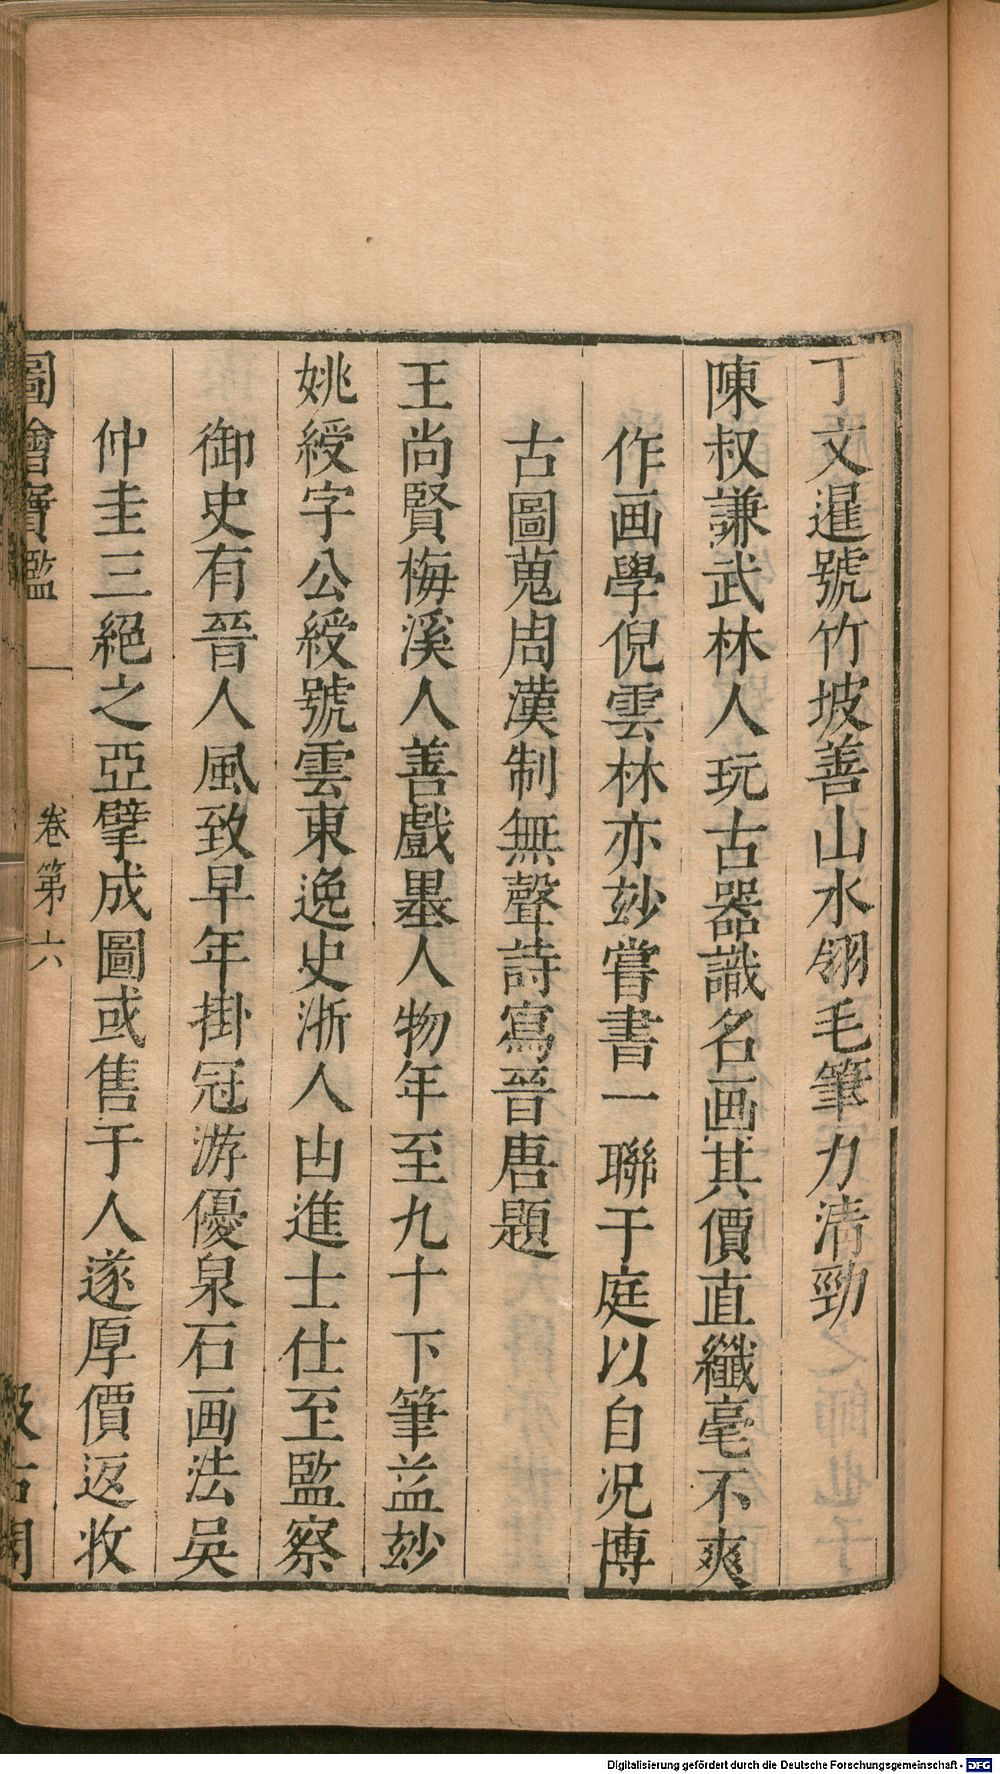 丁文暹號竹坡善山水翎毛筆力清勁
陳叔謙武林人玩古器識名画其價直纖毫不爽
作画學倪雲林亦玅嘗書一聯于庭以自况博
古圖蒐周漢制無聲詩寫晉唐題
王尚賢梅溪人善戲墨人物年至九十下筆益玅
姚綬字公綬號雲東逸史浙人由進士仕至監察
御史有晉人風致早年掛冠游優泉石画法吳
仲圭三絕之亞擘成圖或售于人遂厚價返收
圖繪寶鑑
卷第六
汲古閣
Digitalisierung gefördert durch die Deutsche Forschungsgemeinschaft - DFG